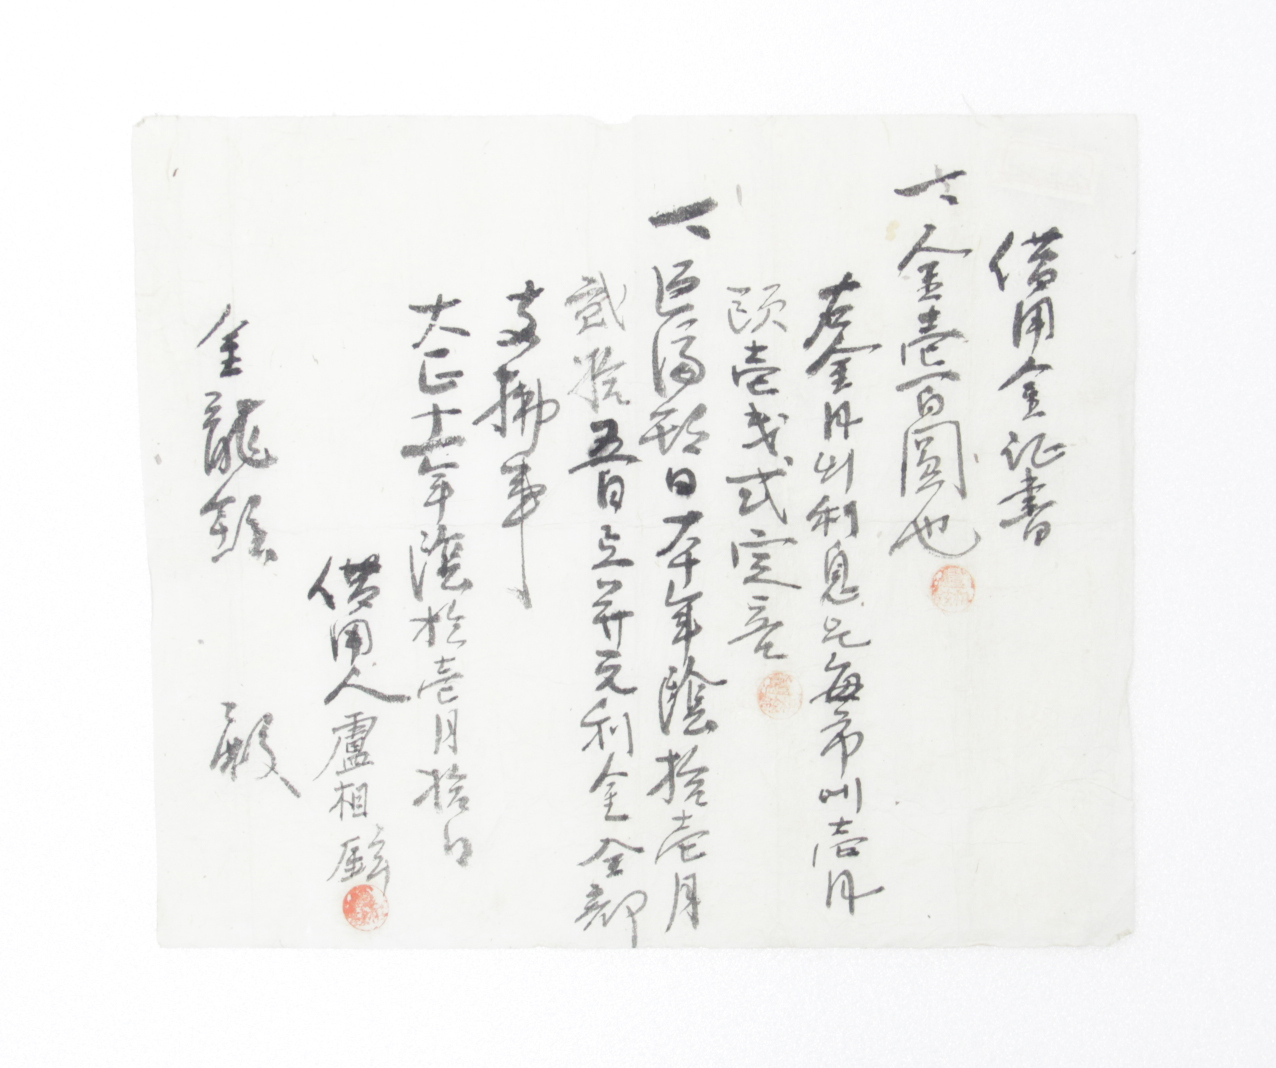 借用金証書
一金壹百圓也
右金月利利息은每市에壹月
頭壹戔式定흠
一返濟期日本年陰拾壹月
貳拾五日로並元利金全部
支拂事
大正十一年陰拾壹月拾日
借用人盧相
金龍鉉 殿